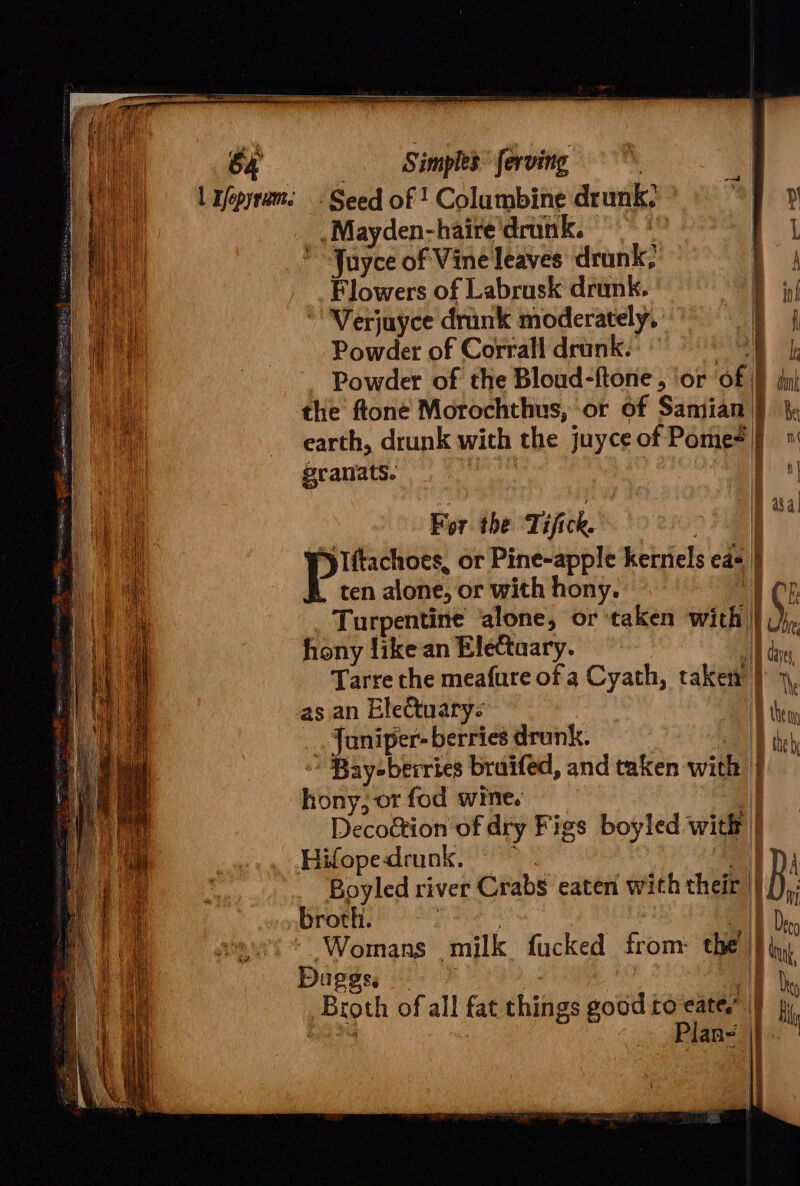 64 Simples ſerving
l Iſopyrum. Seed of l Columbine drunk.
Mayden-haire drunk.
Juyce of Vine leaves drunk.
Flowers of Labrusk drunk.
Verjuyce drunk moderately.
Powder of Corrall drunk.
Powder of the Bloud-ſtone, or of
the ſtone Morochthus, or of Samian
earth, drunk with the juyce of Pome-
granats.
For the Tiſick.
PIſtachoes, or Pine-apple kernels ea-
ten alone, or with hony.
Turpentine alone, or taken with
hony like an Electuary.
Tarre the meaſure of a Cyath, taken
as an Electuary.
Juniper-berries drunk.
Bay-berries bruiſed, and taken with
hony, or ſod wine.
Decoction of dry Figs boyled with
Hiſope drunk.
Boyled river Crabs eaten with their
broth.
Womans milk ſucked from the
Duggs.
Broth of all fat things good to eate.
Plan-